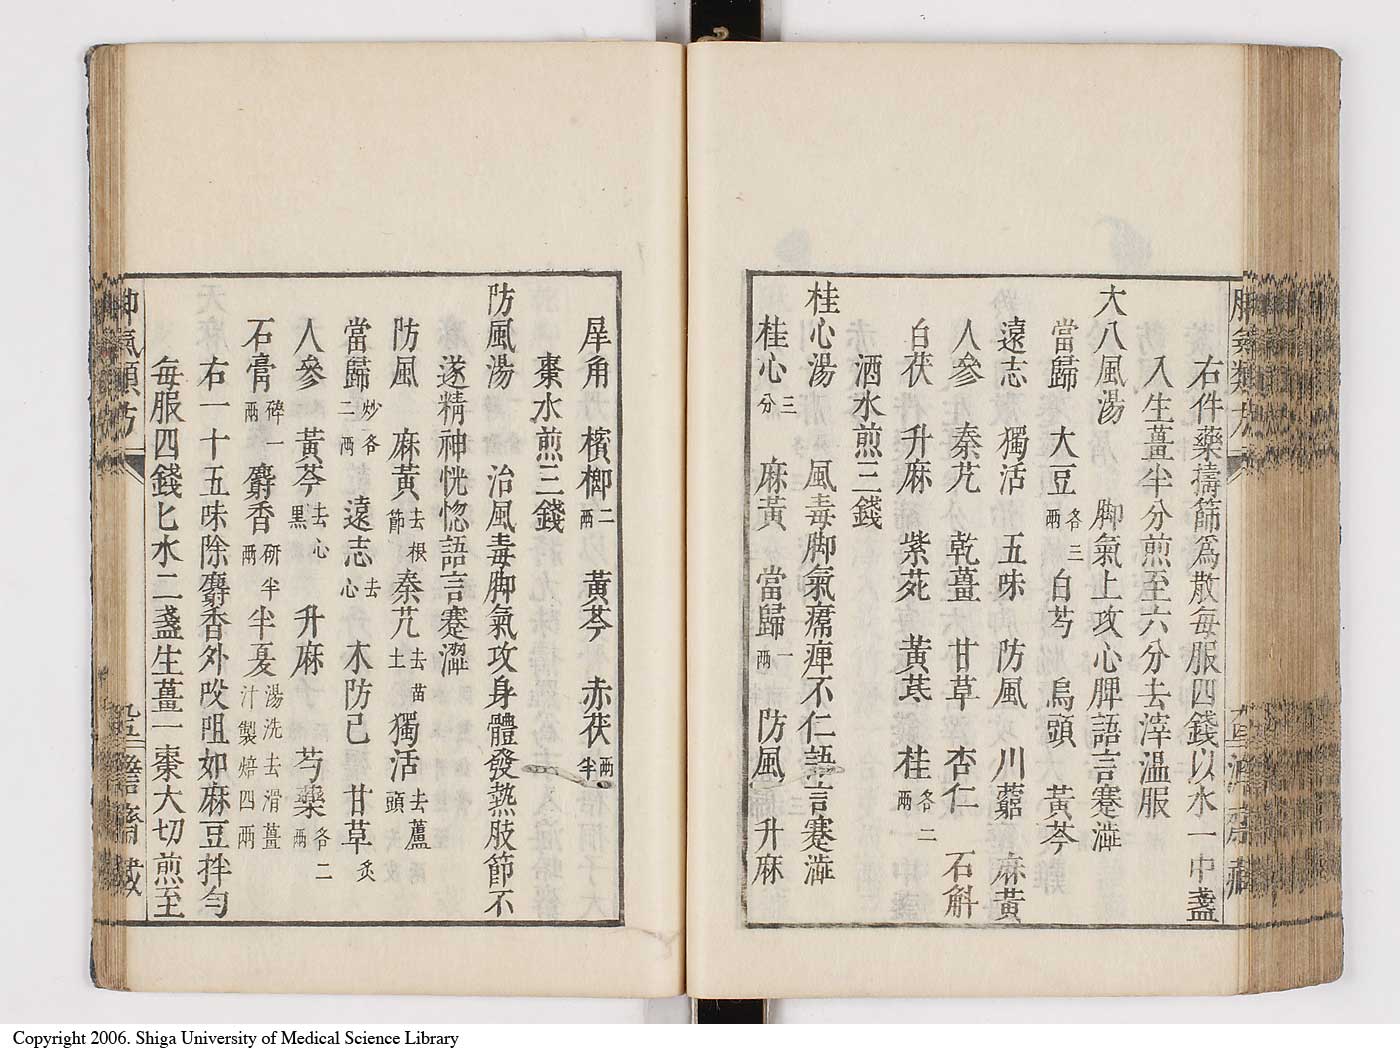 右件藥擣篩爲散每服四錢以水一中盞
入生薑半分煎至六分去滓溫服
大八風湯 脚氣上攻心脾語言蹇澁
當歸 大豆各三兩 白芍 烏頭 黃芩
遠志 獨活 五味 防風 川藭 麻黃
人參 秦艽 乾薑 甘草 杏仁 石斛
白茯 升麻 紫菀 黃芪 桂各二兩
酒水煎三錢
桂心湯 風毒脚氣𤸷痺不仁語言蹇澁
桂心三分 麻黃 當歸一兩 防風 升麻
犀角 檳榔二兩 黃芩 赤茯兩半
棗水煎三錢
防風湯 治風毒脚氣攻身體發熱肢節不
遂精神恍惚語言蹇澀
防風 麻黃去根節 秦艽去苗土 獨活去蘆頭
當歸炒各二兩 遠志去心 木防己 甘草炙
人參 黃芩去心黑 升麻 芍藥各二兩
石膏碎一兩 麝香研半兩 半夏湯洗去滑薑汁製焙四兩
右一十五味除麝香外㕮咀如麻豆拌勻
每服四錢匕水二盞生薑一棗大切煎至
脚氣類方
Copyright 2006. Shiga University of Medical Science Library